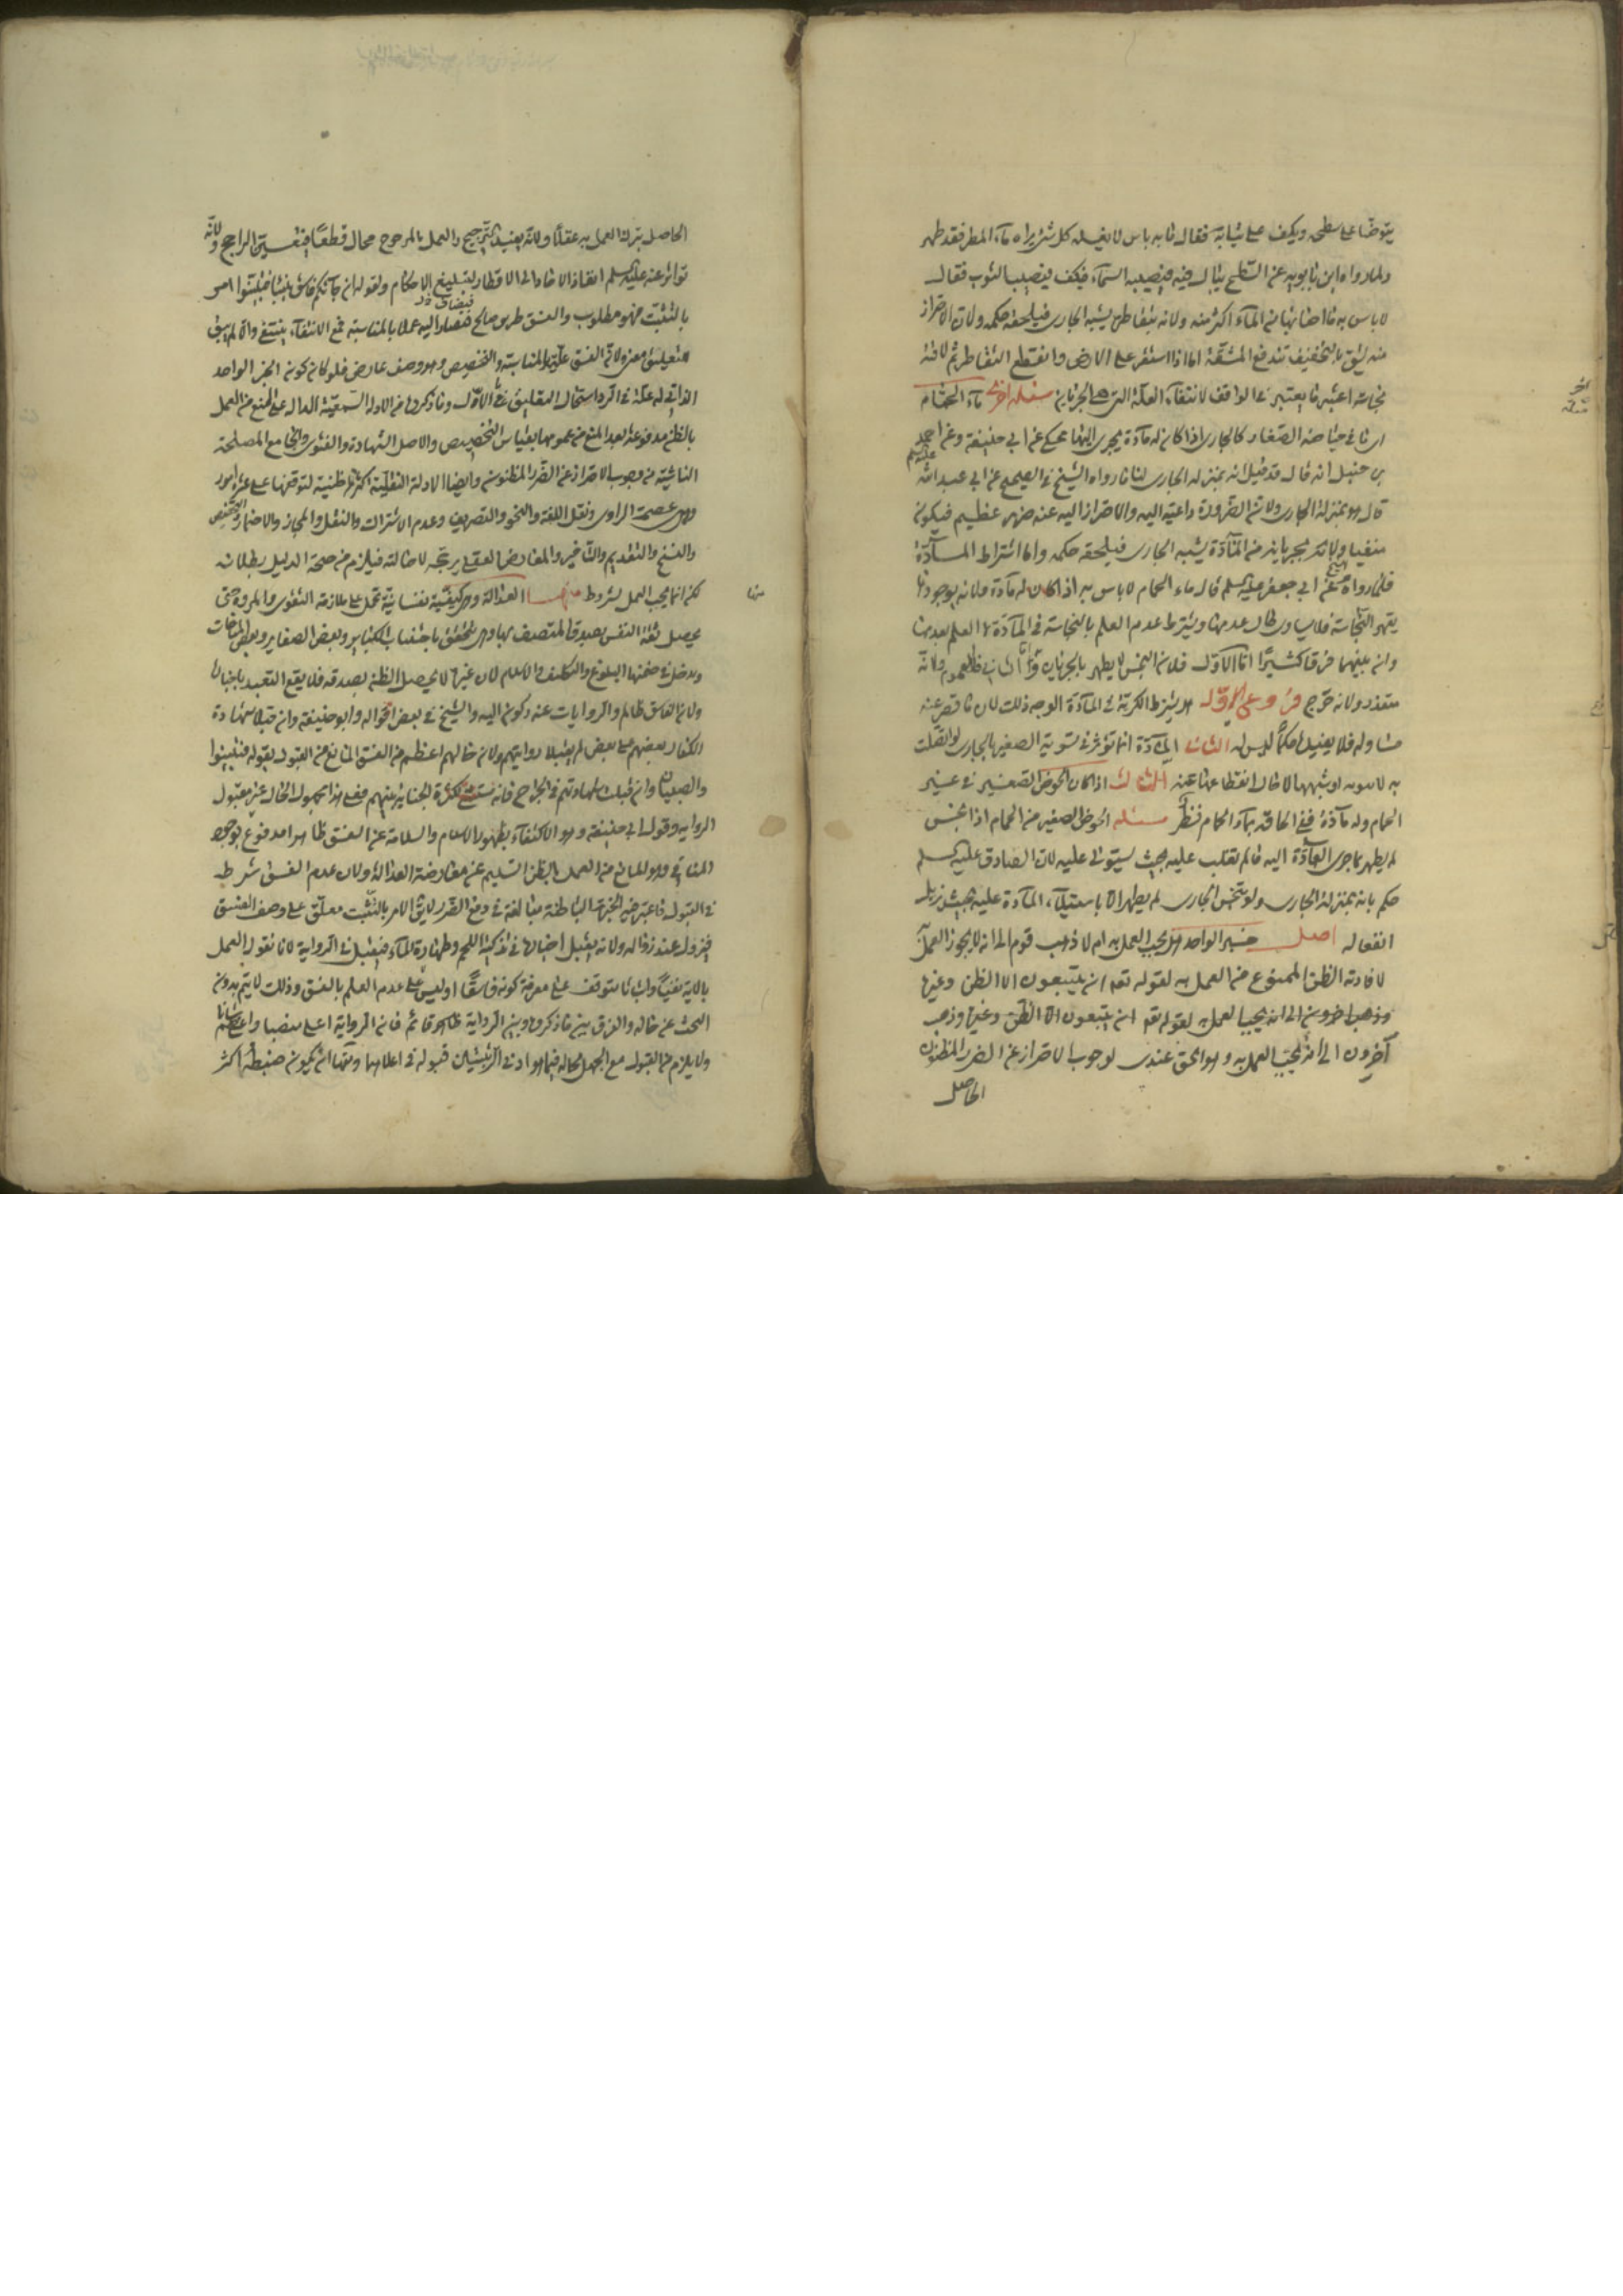 يتوضأ على سطحى ويكف على ثيابه فقال ما به باس لا تغسله كل شئ يراه ماء المطر فقد طهر
ولما رواه ابن بابويه عن السطح يبال فيه فيصيبه السماء فيكف فيصيب الثوب فقال
لا باس به ما اصابها من الماء اكثر منه ولانه بتقاطره يشبه الجارى فيلحقه حكمه ولان الاحتراز
منه يشق بالتخفيف تندفع المشقة اما اذا استقر على الارض وانقطع التقاطر ثم لاقته
نجاسة اعتبر ما يعتبر فى الواقف لانتفاء العلة التى هى الجريان مسئله اخرى ماء الحمام
اى ما فى حياضه الصغار كالجارى اذا كان له مادة يجرى اليها حكى عن ابى حنيفة وعن احمد
بن حنبل انه قال قد قيل انه بمنزلة الجارى لنا ما رواه الشيخ فى الصحيح عن ابى عبد الله عليه السلم
قال هو بمنزلة الجارى ولان الضرورة داعية اليه والاحتراز اليه عنه ضرر عظيم فيكون
منفيا ولانه بجريانه من المادة يشبه الجارى فيلحقه حكمه واما اشتراط المادة
فلما رواه الشيخ عن ابى جعفر عليه السلم قال ماء الحمام لا باس به اذا كان له مادة ولانه بوجودها
يقهر النجاسة فلا يساوى حال عدمها ويشترط عدم العلم بالنجاسة فى المادة لا العلم بعدمها
وان بينهما فرقا كثيرا اما الاول فلان النجس لا يطهر بالجريان واما الثانى فللعموم ولانه
متعذر ولانه حرج فروع الاول هل يشترط الكرية فى المادة الوجه ذلك لان ما قصر عنه
مساو له فلا يفيده حكما ليس له الثانى المادة انما تؤثر فى تسوية الصغير بالجارى لو اتصلت
به الثالث اذا كان الحوض الصغير فى غير
الحمام وله مادة ففى الحاقه بماء الحام نظر مسئله الحوض الصغير من الحمام اذا نجس
لم يطهر بما جرى المادة اليه ما لم تغلب عليه بحيث يستولى عليه لان الصادق عليه السلم
حكم بانه بمنزلة الجارى ولو تنجس الجارى لم يطهر الا باستيلاء المادة عليه بحيث يزيل
انفعاله اصل خبر الواحد هل يجب العمل به ام لا ذهب قوم الى انه لا يجوز العمل
لافادته الظن الممنوع من العمل به لقوله تعه ان يتبعون الا الظن وغيرها
وذهب اخرون الى انه يجب العمل به لقوله تعه ان يتبعون الا الظن وغيرها وذهب
آخرون الى انه يجب العمل به وهو الحق عندى لوجوب الاحتراز عن الضرر المظنون
الحاصل
الحاصل بترك العمل به عقلا ولانه يفيد الترجيح والعمل بالمرجوح محال قطعا فيتعين الراجح ولانه
تواتر عنه عليه السلم انفاذ الاحاد الى الاقطار لتبليغ الاحكام ولقوله ان جآئكم فاسق بنبأ فتبينوا امر
بالتثبت فهو مطلوب والفسق طريق صالح فيضاف اليه عملا بالمناسبة فمع الانتفاء ينتفى والا لم يبق
للتعليق معنى ولان الفسق علة للمناسبة والتخصيص وهو وصف عارض فلو كان كونه الخبر الواحد
الذاتى له علة فى الرد استحال التعليق فى الاول وما ذكروه من الادلة السمعية الدالة على المنع من العمل
بالظن مدفوعة بعد المنع من عمومها بقياس التخصيص والاصل الشهادة والفتوى والجامع المصلحة
الناشئة من وجوب الاحتراز عن الضرر المظنون وايضا الادلة النقلية اكثرها ظنية لتوقفها على عشرة امور
وهى عصمة الراوى ونقل اللغة والنحو والتصريف وعدم الاشتراك والنقل والمجاز والاضمار والتخصيص
والنسخ والتقديم والتاخير والمعارض العقلى يرجحه لاحالته فيلزم من صحة الدليل بطلانه
لكن انما يجب العمل بشروط منها العدالة وهى كيفية نفسانية تحمل على ملازمة التقوى والمروة حتى
يحصل ثقة النفس بصدق المتصف بها وهى تتحقق باجتناب الكبائر وبعض الصغاير وبعض المباحات
ويدخل فى ضمنها البلوغ والتكليف والاسلام لان غيرها لا يحصل الظن بصدقه فلا يقع التعبد باخباره
ولان الفاسق ظالم والروايات عنه ركون اليه والشيخ فى بعض اقواله وابو حنيفة وان قبلا شهادة
الكفار بعضهم على بعض لم يقبلا روايتهم ولان حالهم اعظم من الفسق المانع من القبول بقوله فتبينوا
والصبيان وان قبلت شهادتهم فى الجراح فانه مستثنى لكثرة الجناية بينهم فعلى هذا مجهول الحال غير مقبول
الرواية وقول ابى حنيفة وهو الاكتفاء بظهور الاسلام والسلامة عن الفسق ظاهرا مدفوع بوجود
المنافى وهو المانع من العمل بالظن السليم عن معارضة العدالة ولان عدم الفسق شرط
فى القبول فاعتبر فيه الخبرة الباطنة مبالغة فى دفع الضرر لا يق الامر بالتثبت معلق على وصف الفسق
فيزول عند زواله ولانه يقبل اخباره فى تذكية اللحم وطهارة الماء فيقبل فى الرواية لانا نقول العمل
بالاية نفيا واثباتا متوقف على معرفة كونه فاسقا او ليس على عدم العلم بالفسق وذلك لا يتم بدون
البحث عن حاله والفرق بين ما ذكروه وبين الرواية ظاهر قائم فان الرواية اعلى منصبا واعظم شانا
ولا يلزم من القبول مع الجهل بحاله فيما هو ادنى الرتبتين قبوله فى اعلاهما ومنها ان يكون ضبطه اكثر
منها